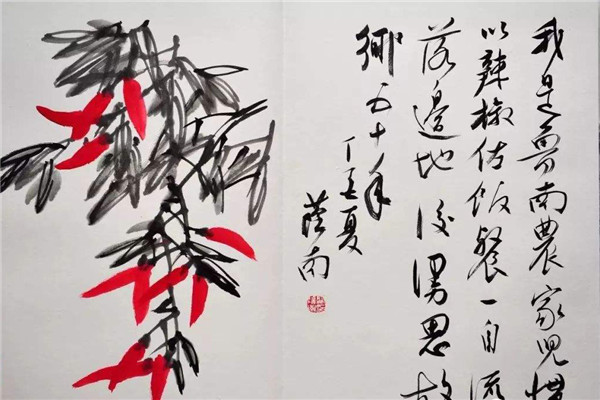 我是魯南農家兒慣
以辣椒佐飯餐一自流
落邊地後漫思故
鄉五十年
丁亥夏
蔭南